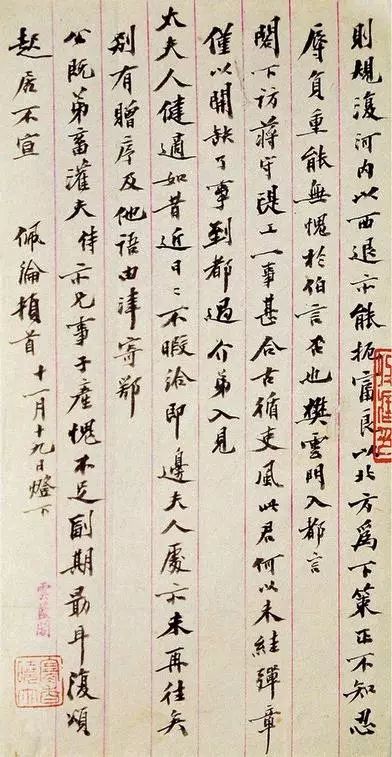 則規復河內以西退亦能扼富良以北方為下策正不知忍
辱負重能無愧於伯言否也樊雲門入都言
閣下訪蔣守謹工一事甚合古循吏風此君何以未絓彈章
僅以開缺了事到都過介弟入見
太夫人健適如昔近日〻不暇給即邊夫人處亦未再往矣
別有贈序及他語由津寄鄂
公既弟畜灌夫侍亦兄事子產愧不足副期勗耳復頌
起居不宣 佩綸頓首 十一月十九日燈下
雲藍閣